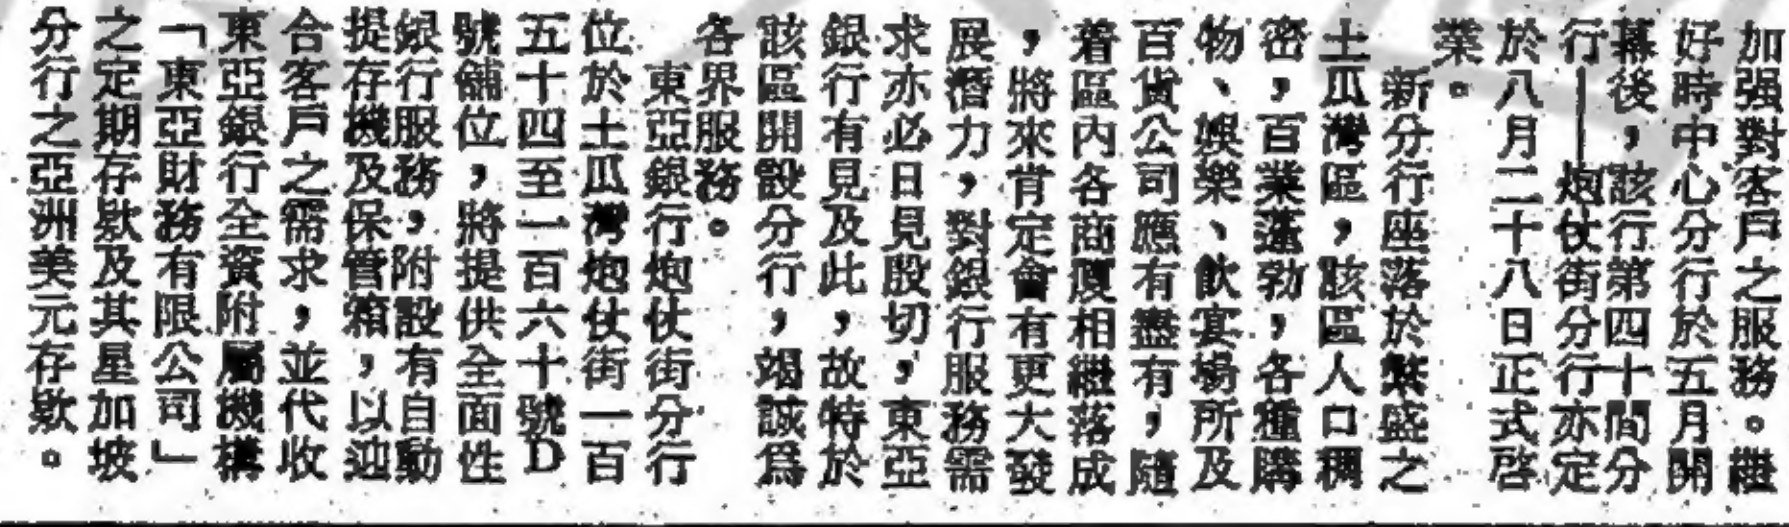 加强對客戶之服務。繼
好時中心分行於五月開
幕後，該行第四十間分
行——炮仗街分行亦定
於八月二十八日正式啓
業。
新分行座落於繁盛之
土瓜灣區，該區人口稠
密，百業蓬勃，各種購
物、娛樂、飲宴場所及
百貨公司應有盡有，隨
着區內各商廈相繼落成
，將來肯定會有更大發
展潛力，對銀行服務需
求亦必日見殷切，東亞
銀行有見及此，故特於
該區開設分行，竭誠爲
各界服務。
東亞銀行炮仗街分行
位於土瓜灣炮仗街一百
五十四至一百六十號D
號舖位，將提供全面性
銀行服務，附設有自動
提存機及保管箱，以迎
合客戶之需求，並代收
東亞銀行全資附屬機構
「東亞財務有限公司」
之定期存欵及其星加坡
分行之亞洲美元存欵。